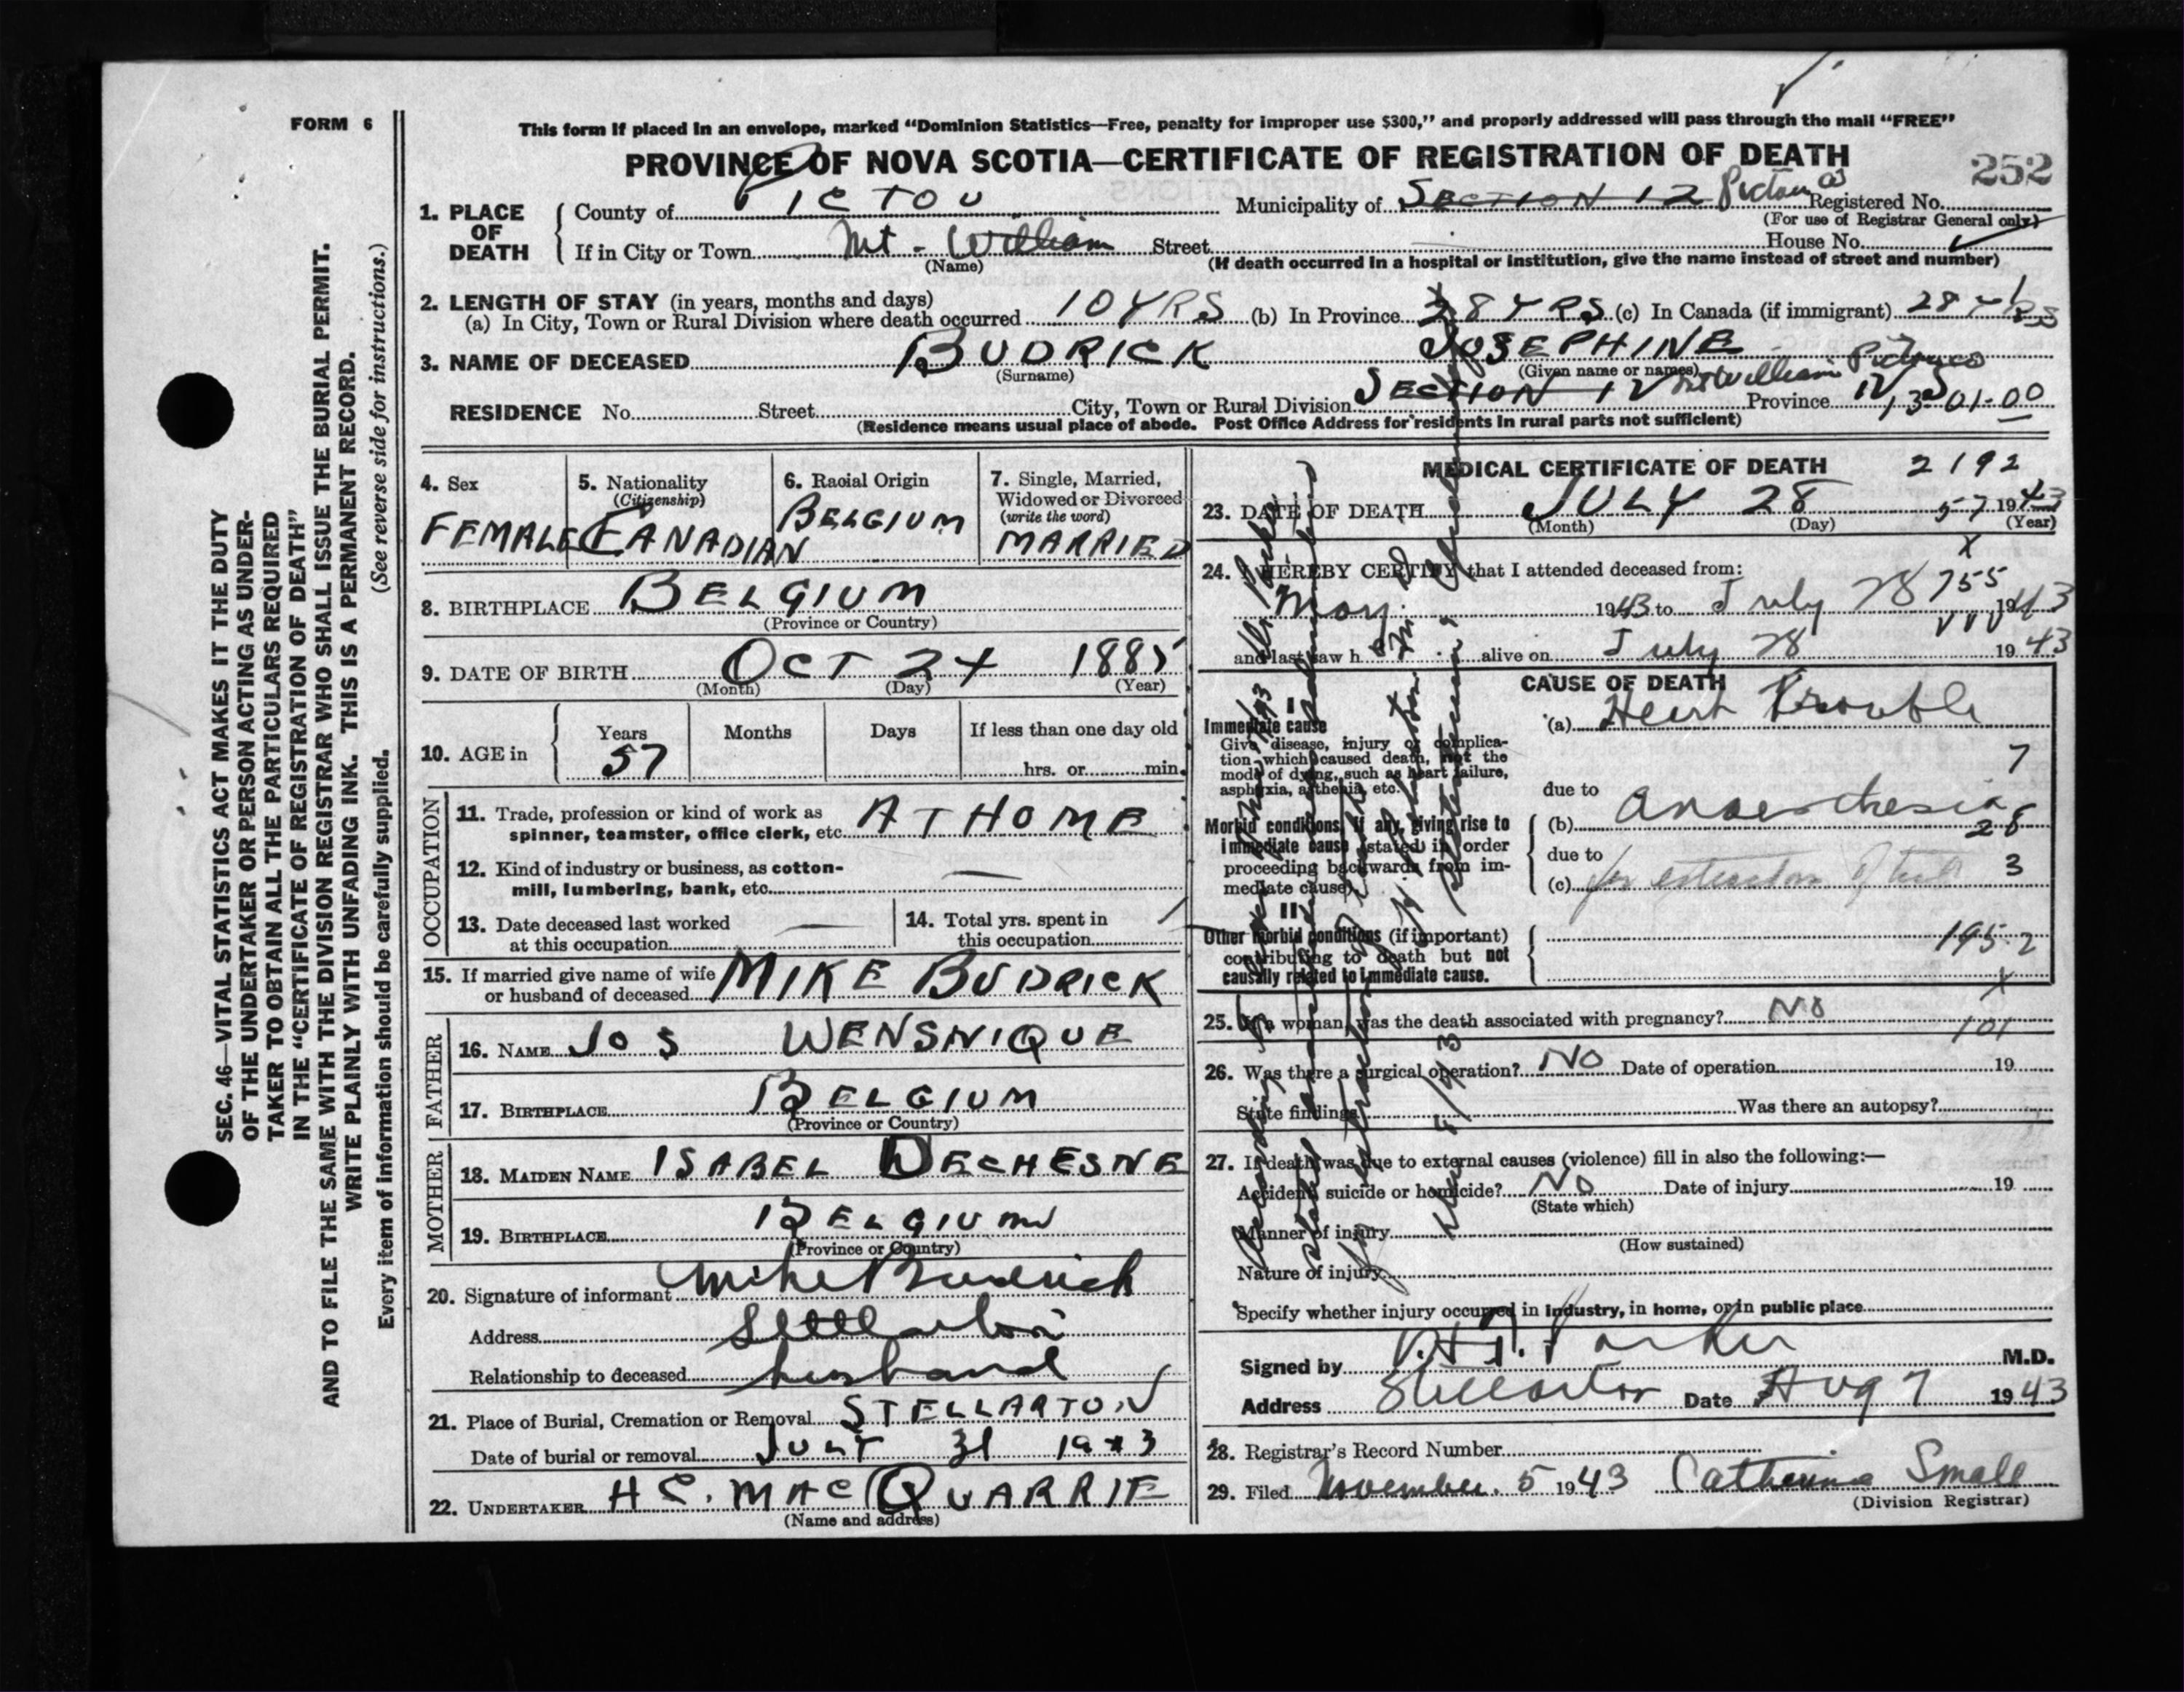 FORM 6
This form if placed in an envelope, marked "Dominion Statistics—Free, penalty for improper use $300," and properly addressed will pass through the mail "FREE"
PROVINCE OF NOVA SCOTIA—CERTIFICATE OF REGISTRATION OF DEATH
252
1. PLACE OF DEATH
County of PICTOU Municipality of SECTION 12 Pictou Co Registered No.
(For use of Registrar General only)
If in City or Town Mt - William Street House No.
(Name) (If death occurred in a hospital or institution, give the name instead of street and number)
2. LENGTH OF STAY (in years, months and days)
(a) In City, Town or Rural Division where death occurred 10 YRS (b) In Province 28 YRS (c) In Canada (if immigrant) 28 YRS
3. NAME OF DECEASED BUDRICK JOSEPHINE
(Surname) (Given name or names)
RESIDENCE No. Street City, Town or Rural Division SECTION 12 Mt William Pictou Co Province NS
1301-00
(Residence means usual place of abode. Post Office Address for residents in rural parts not sufficient)
4. Sex FEMALE
5. Nationality (Citizenship) CANADIAN
6. Racial Origin BELGIUM
7. Single, Married, Widowed or Divorced (write the word) MARRIED
8. BIRTHPLACE BELGIUM
(Province or Country)
9. DATE OF BIRTH OCT 24 1885
(Month) (Day) (Year)
10. AGE in Years 57 Months Days If less than one day old
hrs. or min.
OCCUPATION
11. Trade, profession or kind of work as
spinner, teamster, office clerk, etc. AT HOME
12. Kind of industry or business, as cotton-
mill, lumbering, bank, etc. —
13. Date deceased last worked
at this occupation —
14. Total yrs. spent in
this occupation
15. If married give name of wife
or husband of deceased MIKE BUDRICK
FATHER
16. NAME JOS WENSNIQUE
17. BIRTHPLACE BELGIUM
(Province or Country)
MOTHER
18. MAIDEN NAME ISABEL DECHESNE
19. BIRTHPLACE BELGIUM
(Province or Country)
20. Signature of informant Mike Budrick
Address Stellarton
Relationship to deceased husband
21. Place of Burial, Cremation or Removal STELLARTON
Date of burial or removal JULY 31 1943
22. UNDERTAKER H C. MACQUARRIE
(Name and address)
MEDICAL CERTIFICATE OF DEATH 2192
23. DATE OF DEATH JULY 28 57 1943
(Month) (Day) (Year)
24. I HEREBY CERTIFY that I attended deceased from:
May 1943 to July 28 1943
755
and last saw h er alive on July 28 1943
CAUSE OF DEATH
I
Immediate cause
Give disease, injury or complica-
tion which caused death, not the
mode of dying, such as heart failure,
asphyxia, asthenia, etc.
(a) Heart Trouble
7
due to
Morbid conditions, if any, giving rise to
immediate cause (stated in order
proceeding backwards from im-
mediate cause).
(b) anaesthesia
28
due to
(c) for extraction of teeth 3
II
Other morbid conditions (if important)
contributing to death but not
causally related to immediate cause.
195.2
25. If a woman, was the death associated with pregnancy? NO
101
26. Was there a surgical operation? NO Date of operation 19
State findings Was there an autopsy?
27. If death was due to external causes (violence) fill in also the following:—
Accident, suicide or homicide? NO Date of injury 19
(State which)
Manner of injury
(How sustained)
Nature of injury
Specify whether injury occurred in industry, in home, or in public place
Signed by Parker M.D.
Address Stellarton Date Aug 7 1943
28. Registrar's Record Number
29. Filed November. 5 1943 Catherine Small
(Division Registrar)
SEC. 46—VITAL STATISTICS ACT MAKES IT THE DUTY
OF THE UNDERTAKER OR PERSON ACTING AS UNDER-
TAKER TO OBTAIN ALL THE PARTICULARS REQUIRED
IN THE "CERTIFICATE OF REGISTRATION OF DEATH"
AND TO FILE THE SAME WITH THE DIVISION REGISTRAR WHO SHALL ISSUE THE BURIAL PERMIT.
WRITE PLAINLY WITH UNFADING INK. THIS IS A PERMANENT RECORD.
(See reverse side for instructions.)
Every item of information should be carefully supplied.